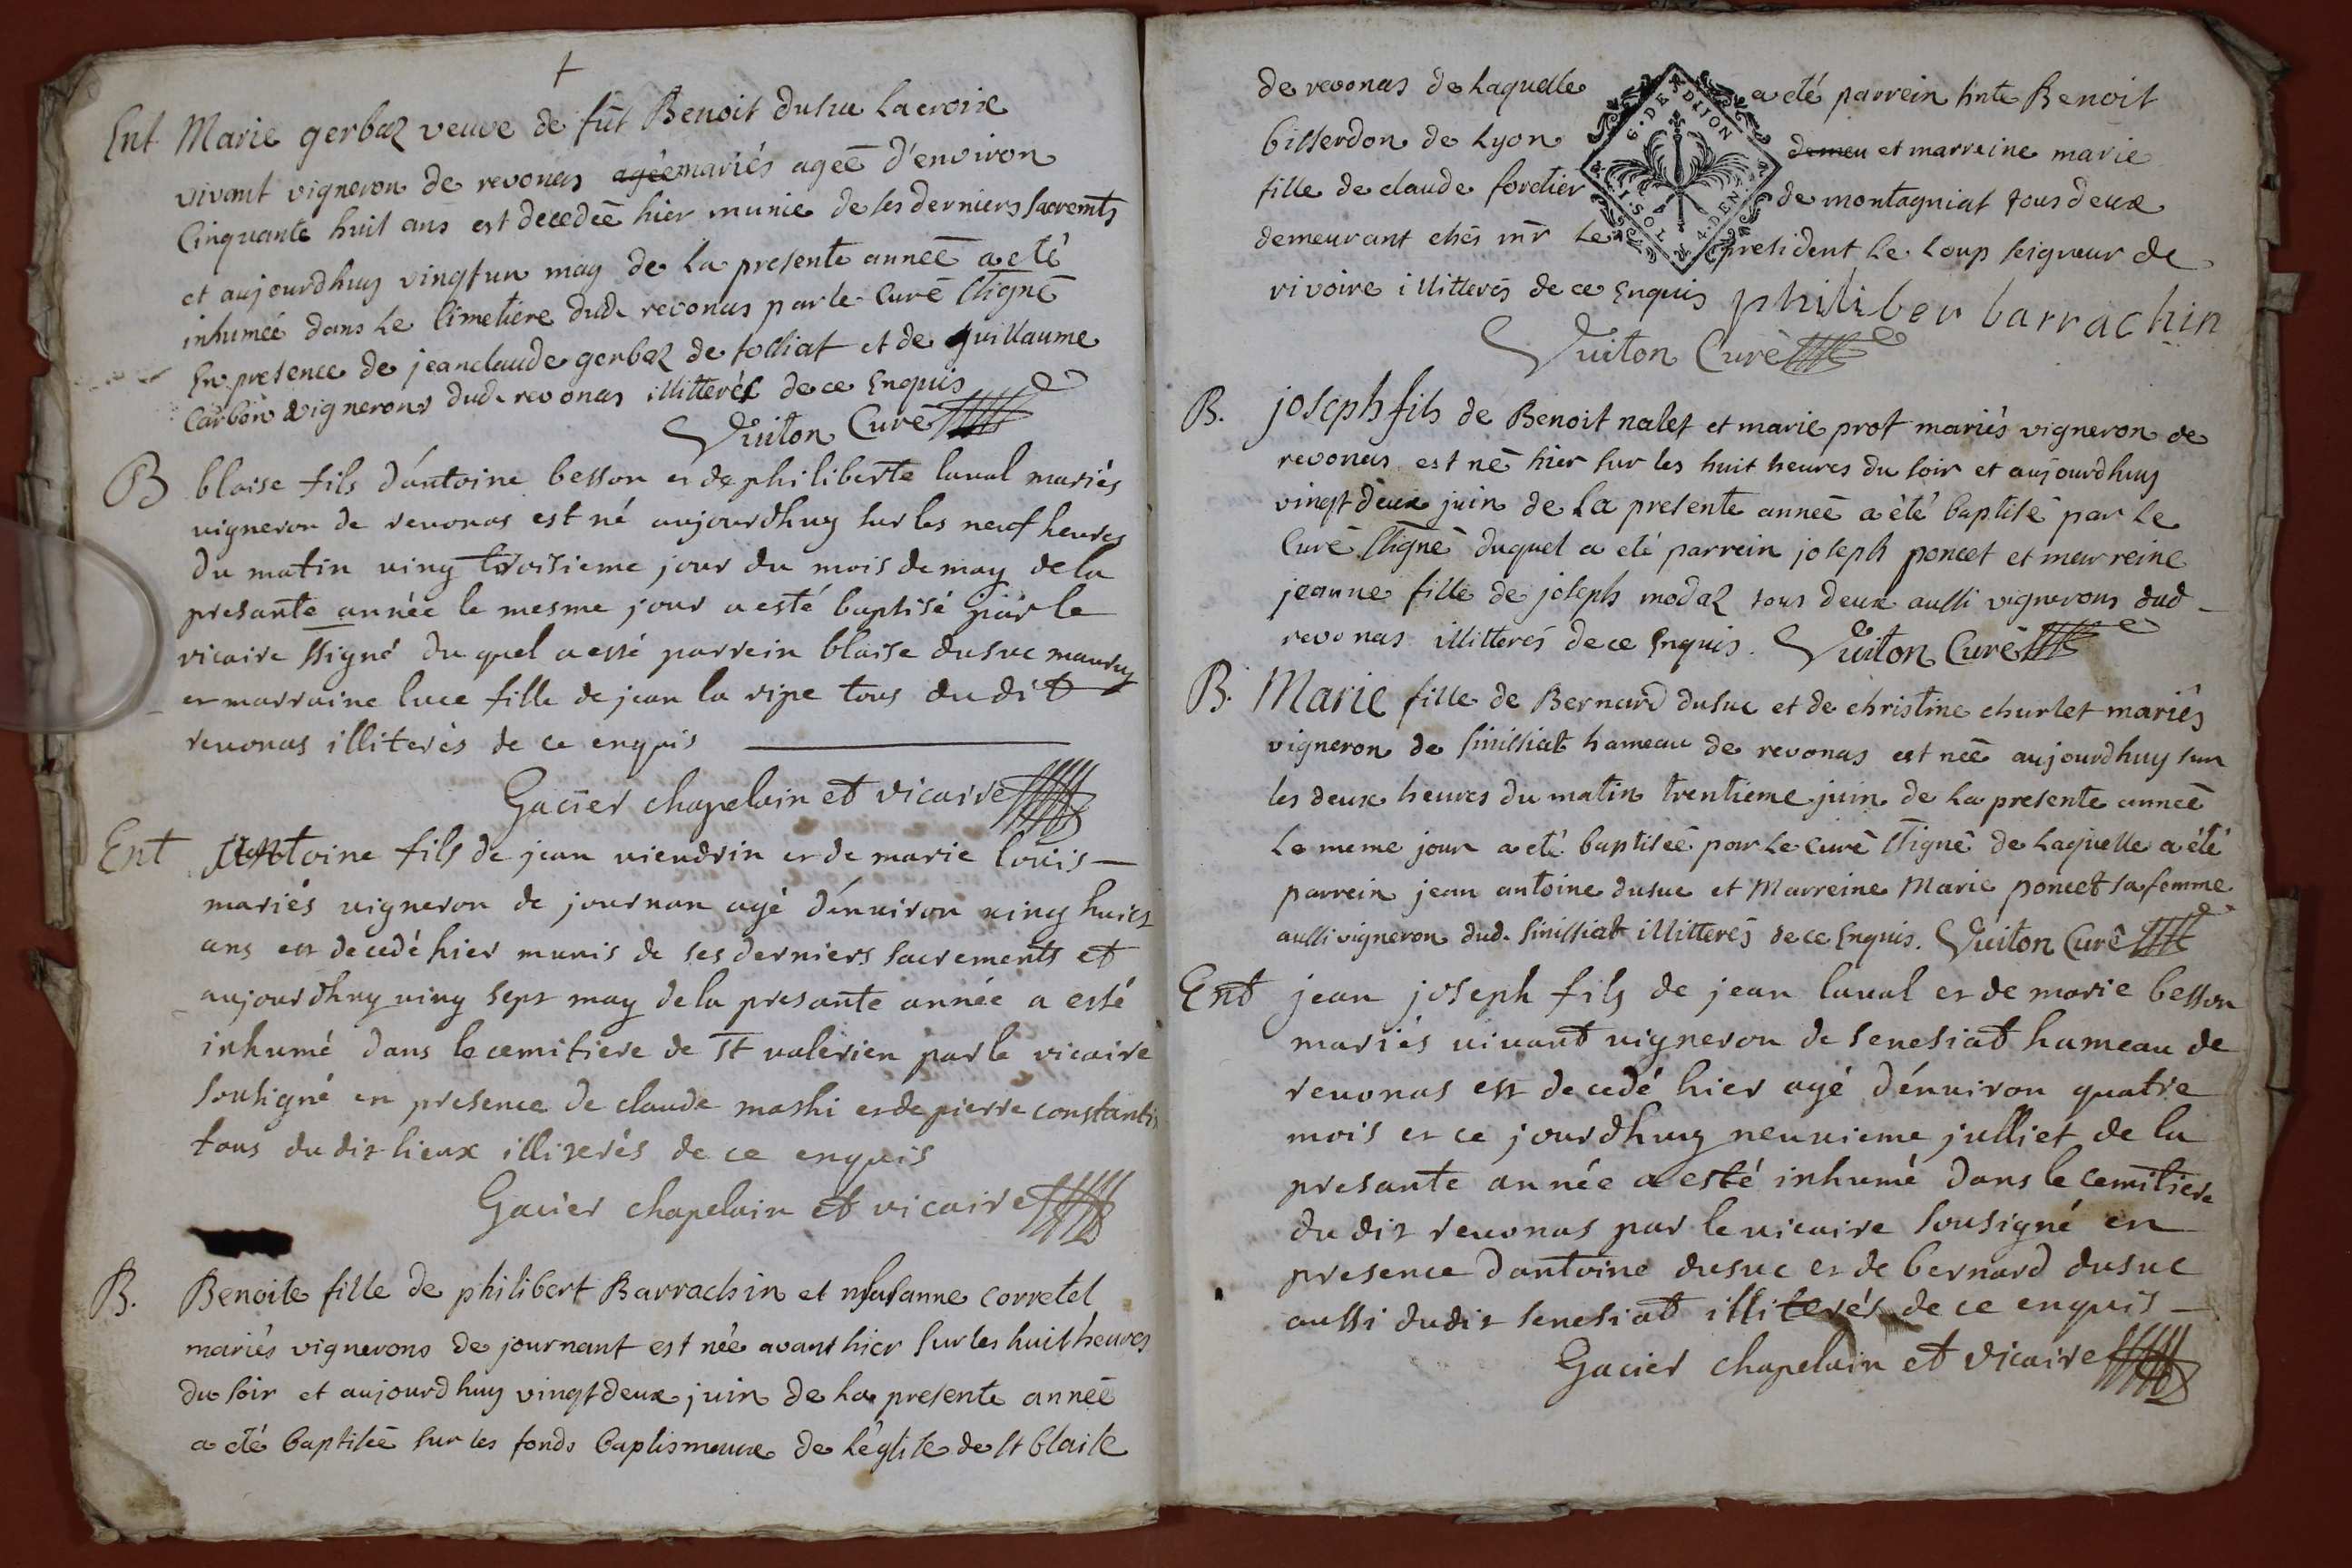 +
Ent Marie gerbaz veuve de fût Benoit dusuc lacroix
vivant vigneron de revonas agée mariés ageē d'environ
Cinquante huit ans est decedeē hier munie de ses derniers sacremts
et aujourdhuy vingt un may de la presente anneē a eté
inhumeé dans le Cimetiere dud. revonas par le Curé ssigné
En presence de jeanclaude gerbaz de tolliat et de guillaume
Carbon vignerons dud. revonas illitterés de ce Enquis
Vuiton Curé
B blaise fils d'antoine besson et de philiberte laval mariés
vigneron de revonas est né aujourdhuy sur les neuf heures
du matin ving troisieme jour du mois de may de la
presante année le mesme jour a esté baptisé par le
vicaire ssigné du quel a esté parrein blaise dusuc
et marraine luce fille de jean la ripe tous dudit
revonas illiterés de ce enquis
Gacier chapelain et vicaire
Ent Antoine fils de jean viendrin et de marie louis
mariés vigneron de journan agé d'environ ving huict
ans est decedé hier munis de ses derniers sacrements et
aujourdhuy ving sept may de la presante année a esté
inhumé dans le cemitiere de st valerien par le vicaire
sousigné en presence de claude mashi et de pierre constantin
tous du dit lieux illiterés de ce enquis
Gacier chapelain et vicaire
B. Benoite fille de philibert Barrachin et susanne corretel
mariés vignerons de journant est née avant hier sur les huit heures
du soir et aujourdhuy vingt deux juin de la presente anneē
a eté baptiseē sur les fonds baptismaux de l'église de st blaise
de revonas de laquelle a eté parrein Benoit
bisserdon de Lyon demeu et marreine marie
fille de claude foretier de montagniat tous deux
demeurant chés mr le president le loup seigneur de
rivoire illitterés de ce Enquis philiber barrachin
Vuiton Curé
G. DE DIJON
I. SOL 4. DEN
B. joseph fils de Benoit nalet et marie prot mariés vigneron de
revonas est né hier sur les huit heures du soir et aujourdhuy
vingt deux juin de la presente anneē a été baptisé par le
Curé ssigné duquel a eté parrein joseph poncet et marreine
jeanne fille de joseph modaz tous deux aussi vignerons dud
revonas illitterés de ce Enquis. Vuiton Curé
B. Marie fille de Bernard dusuc et de christine charlet mariés
vigneron de sinissiat hameau de revonas est neē aujourdhuy sur
les deux heures du matin trentieme juin de la presente anneē
le meme jour a eté baptiseē par le Curé ssigné de laquelle a été
parrein jean antoine dusuc et Marreine Marie poncet sa femme
aussi vigneron dud. sinissiat illitterés de ce Enquis. Vuiton Curé
Ent jean joseph fils de jean laval et de marie besson
mariés vivant vigneron de senesiat hameau de
revonas est decedé hier agé d'environ quatre
mois et ce jourdhuy neuvieme julliet de la
presante année a esté inhumé dans le cemitiere
du dit revonas par le vicaire sousigné en
presence dantoine dusuc et de bernard dusuc
aussi dudit senesiat illiterés de ce enquis
Gacier chapelain et vicaire